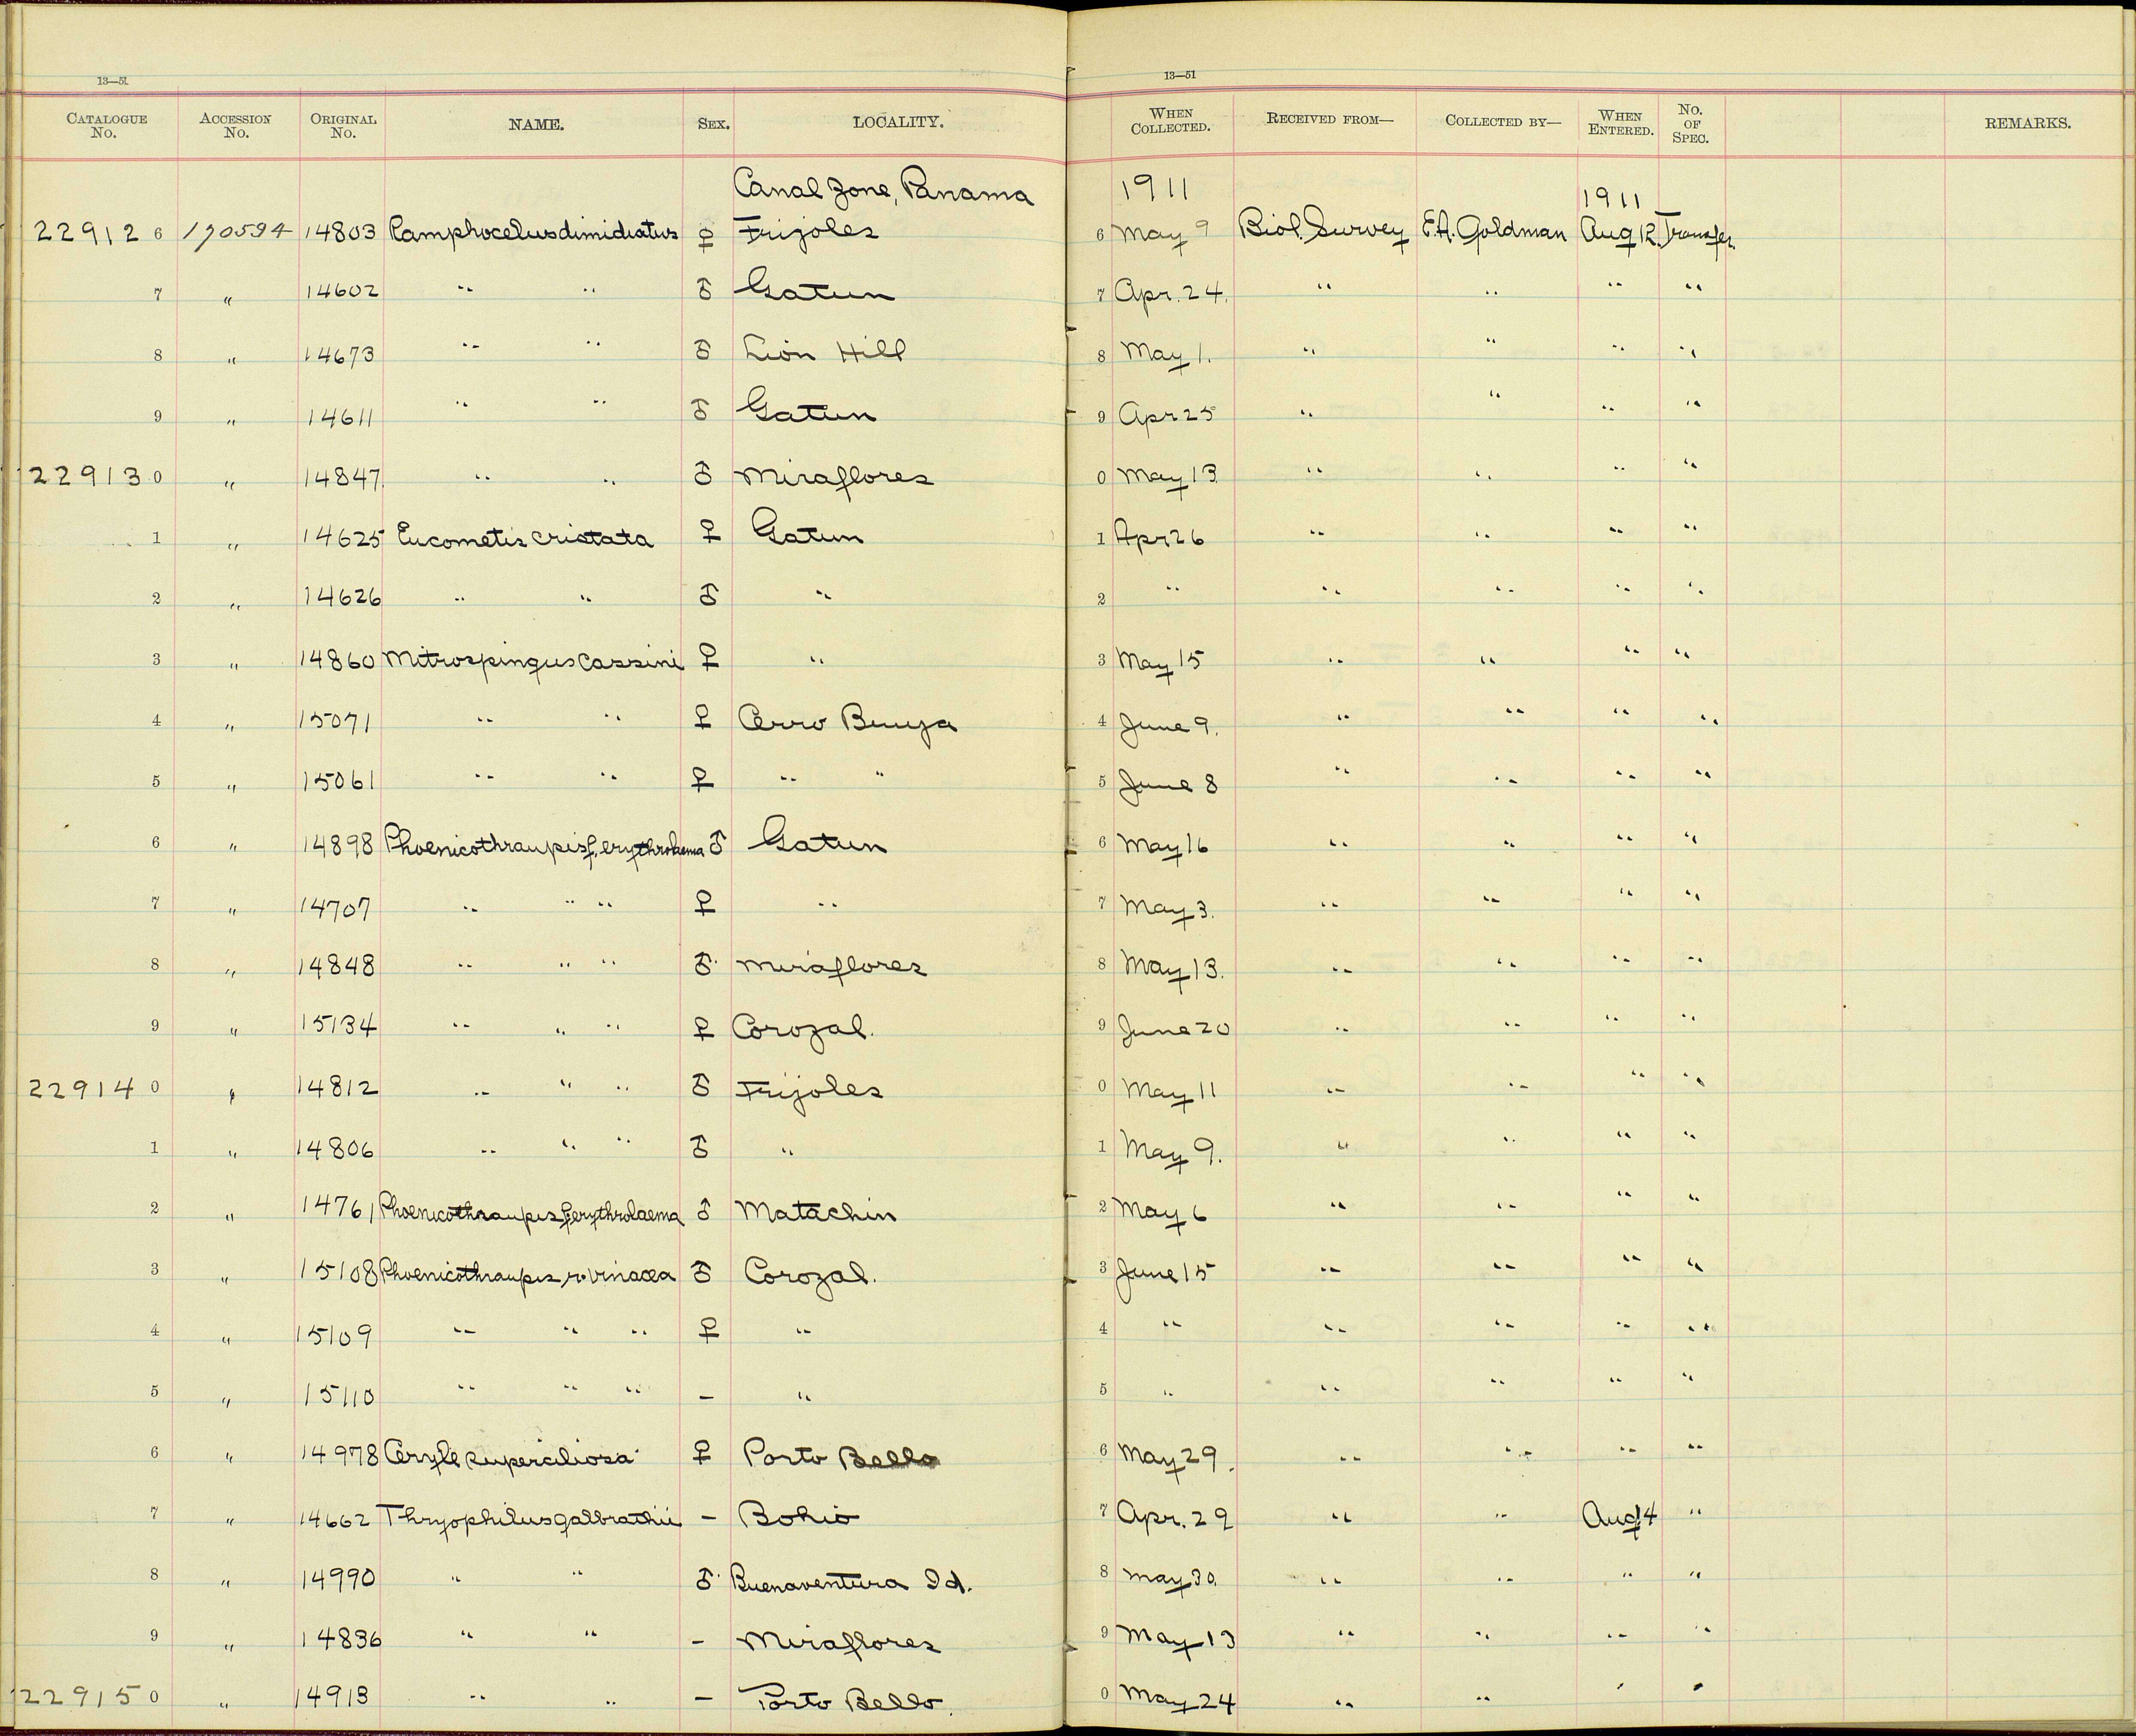 13—51 13—51
CATALOGUE No. ACCESSION No. ORIGINAL No. NAME. SEX. LOCALITY. WHEN COLLECTED. RECEIVED FROM— COLLECTED BY— WHEN ENTERED. No. OF SPEC. REMARKS.
Canal Zone, Panama 1911 1911
22912 6 190594 14803 Ramphocelus dimidiatus ♀ Frijoles 6 May 9 Biol. Survey E.A. Goldman Aug 12. Transfer
7 " 14602 " " ♂ Gatun 7 Apr. 24. " " " "
8 " 14673 " " ♂ Lion Hill 8 May 1. " " " "
9 " 14611 " " ♂ Gatun 9 Apr 25 " " " "
22913 0 " 14847 " " ♂ Miraflores 0 May 13 " " " "
1 " 14625 Eucometis cristata ♀ Gatun 1 Apr 26 " " " "
2 " 14626 " " ♂ " 2 " " " " "
3 " 14860 Mitrospingus cassini ♀ " 3 May 15 " " " "
4 " 15071 " " ♀ Cerro Bruja 4 June 9. " " " "
5 " 15061 " " ♀ " " 5 June 8 " " " "
6 " 14898 Phoenicothraupis f. erythrolaema ♂ Gatun 6 May 16 " " " "
7 " 14707 " " " ♀ " 7 May 3. " " " "
8 " 14848 " " " ♂ Miraflores 8 May 13. " " " "
9 " 15134 " " " ♀ Corozal. 9 June 20 " " " "
22914 0 " 14812 " " " ♂ Frijoles 0 May 11 " " " "
1 " 14806 " " " ♂ " 1 May 9. " " " "
2 " 14761 Phoenicothraupis f. erythrolaema ♂ Matachin 2 May 6 " " " "
3 " 15108 Phoenicothraupis r. vinacea ♂ Corozal. 3 June 15 " " " "
4 " 15109 " " " ♀ " 4 " " " " "
5 " 15110 " " " – " 5 " " " " "
6 " 14978 Ceryle superciliosa ♀ Porto Bello 6 May 29. " " " "
7 " 14662 Thryophilus galbrathii – Bohio 7 Apr. 29 " " Aug 14 "
8 " 14990 " " ♂ Buenaventura Id. 8 May 30. " " " "
9 " 14836 " " – Miraflores 9 May 13 " " " "
22915 0 " 14913 " " – Porto Bello. 0 May 24 " " " "